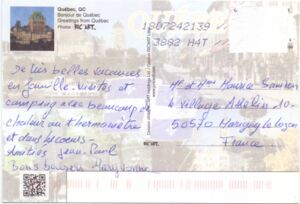 Québec, QC
Bonjour de Québec
Greetings from Québec
Photo:
1807242139
3882 H4T
De très belles vacances
en famille visites et
camping avec beaucoup de
chaleur au thermomètre
et dans les coeurs
Amitiés Jean Paul
Bons baisers Maryvonne
Mr et Mme Maurice
le village
50570 Marigny le Lozon
France